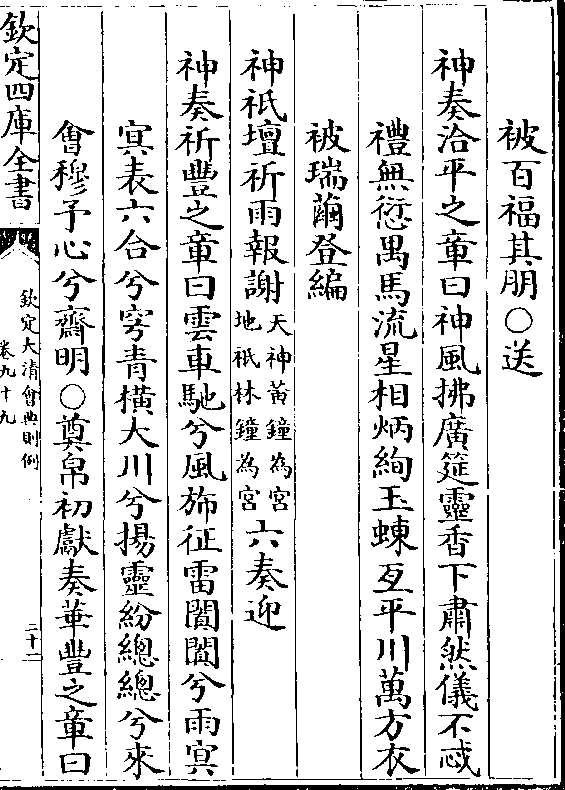 被百福其朋○送
神奏洽平之章曰神風拂廣筵靈香下肅然儀不忒
禮無愆禺馬流星相炳絢玉蝀亙平川萬方衣
被瑞繭登編
神祇壇祈雨報謝天神黃鐘為宮地祇林鐘為宮六奏迎
神奏祈豐之章曰雲車馳兮風斾征雷闐闐兮雨㝠
㝠表六合兮穹青橫大川兮揚靈紛總總兮來
會穆予心兮齋明○奠帛初獻奏華豐之章曰
欽定四庫全書
欽定大清會典則例
卷九十九
二十二